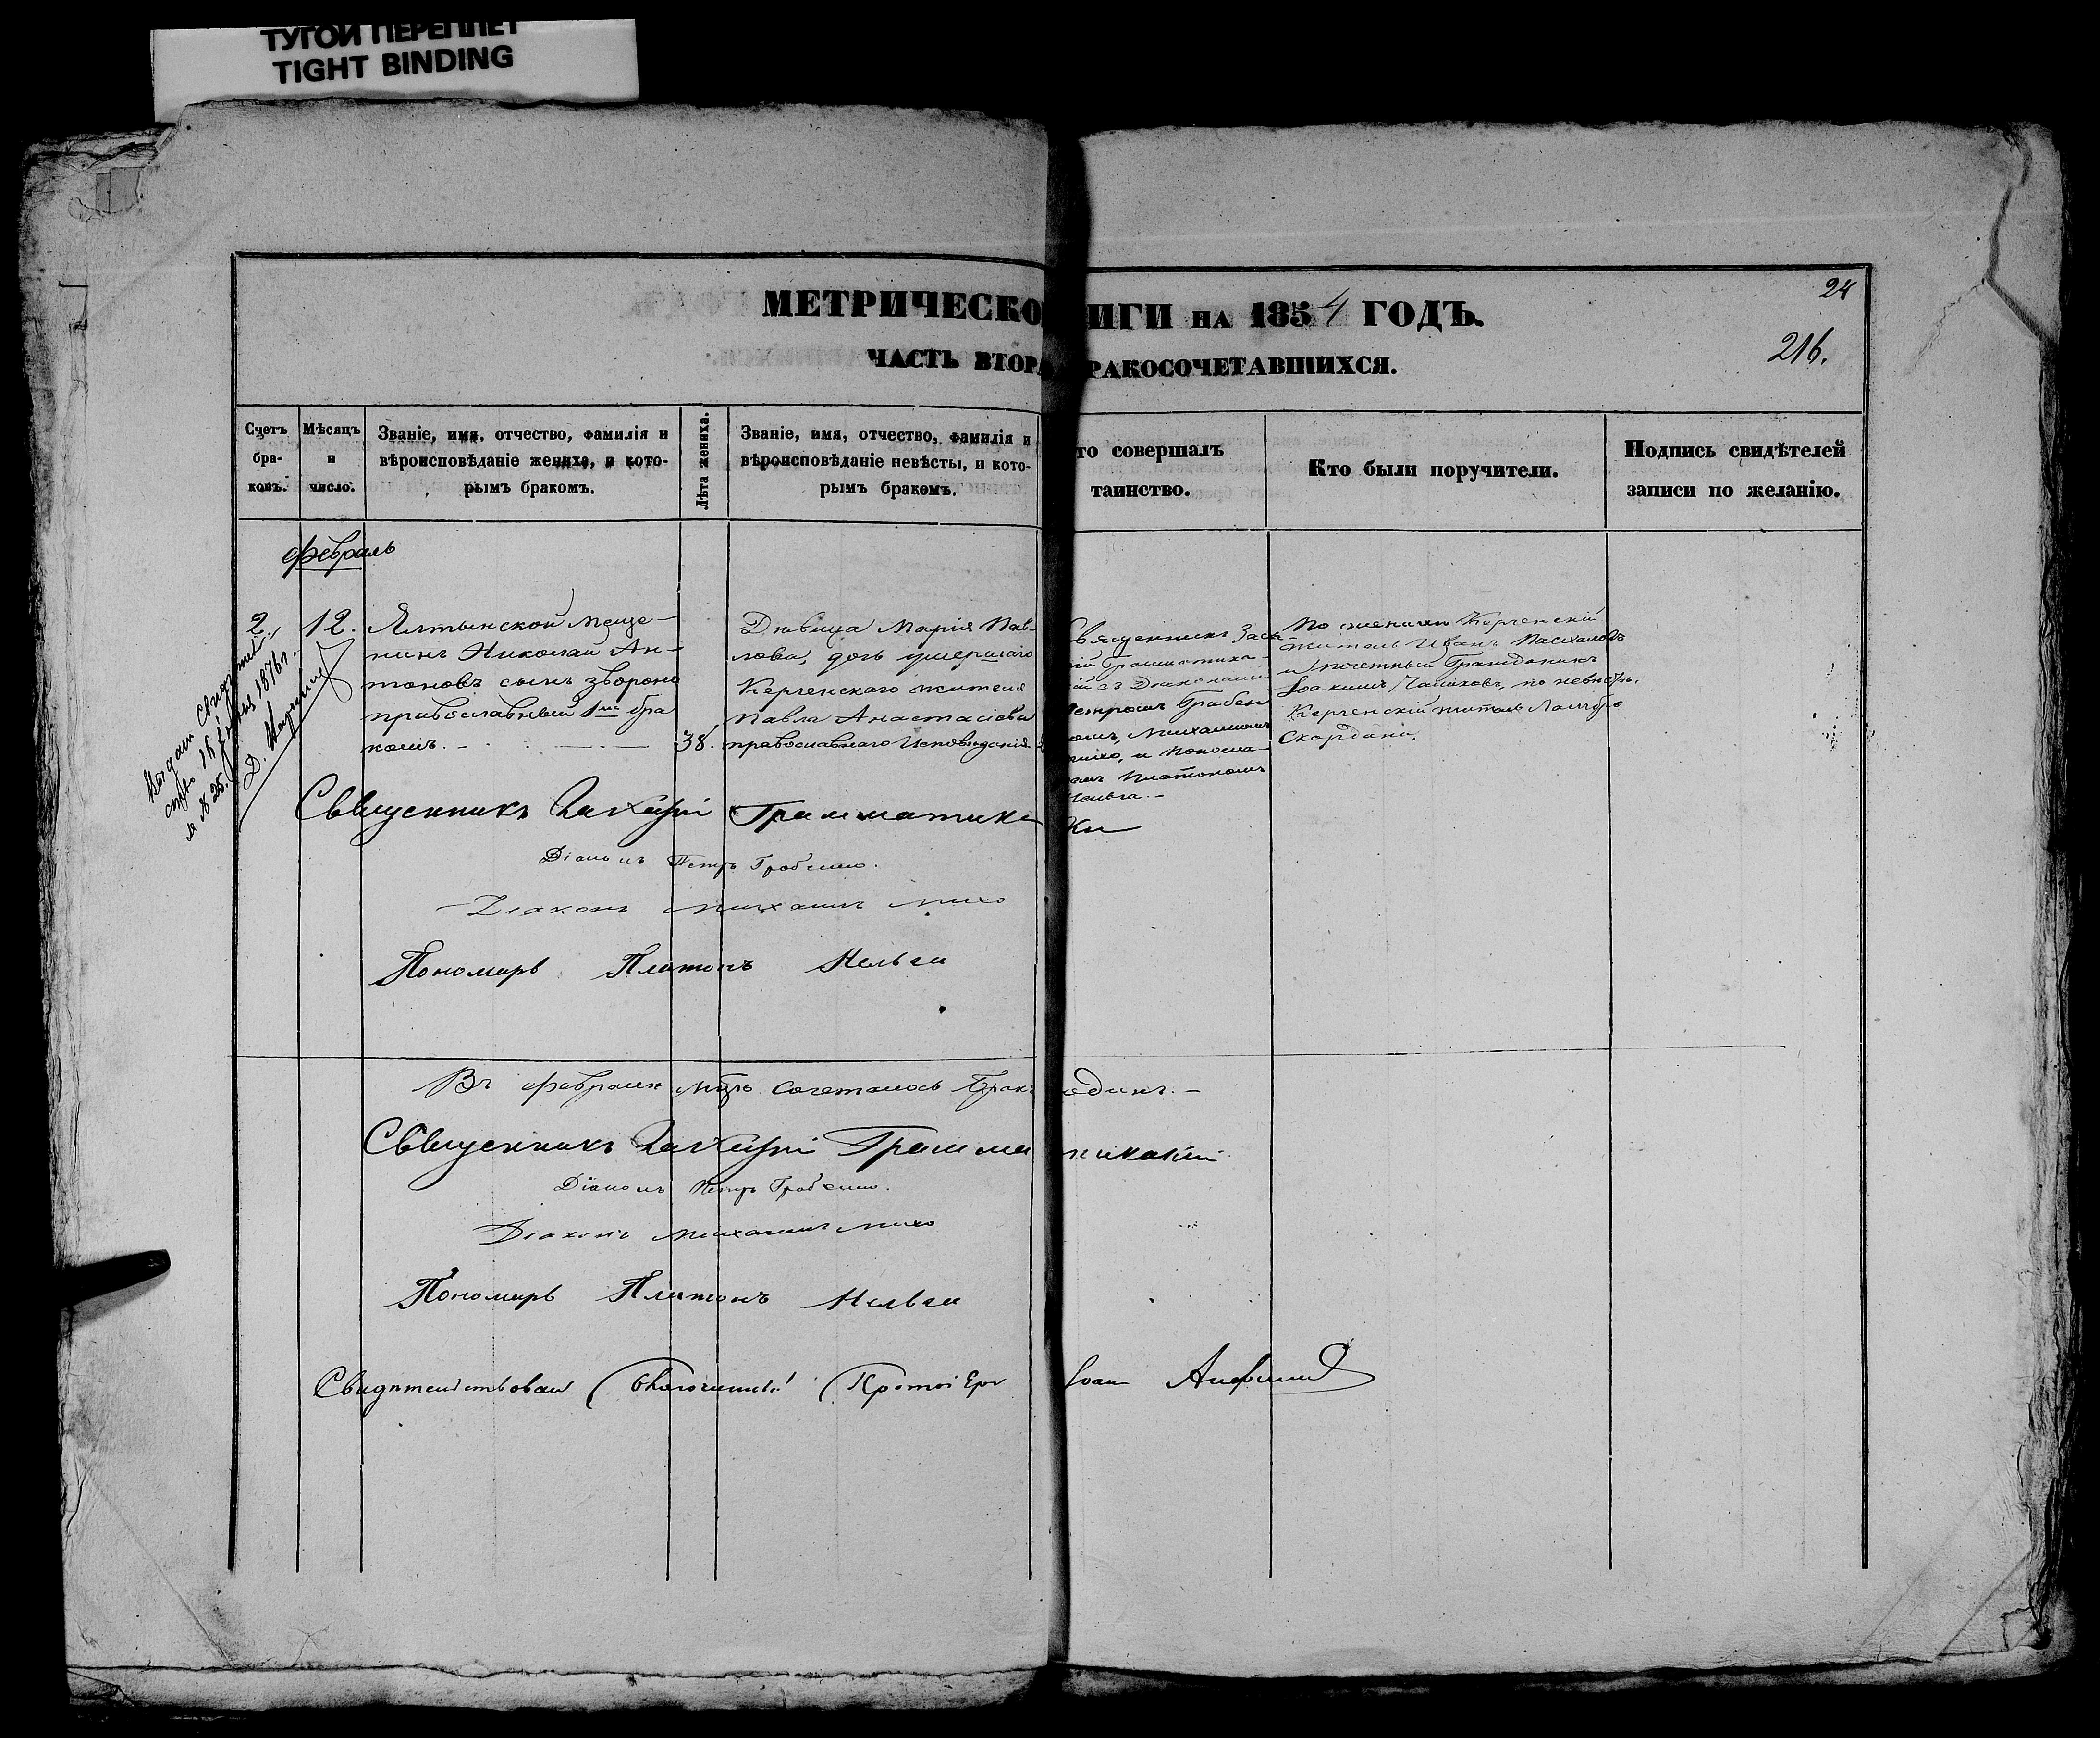 ТУГОЙ ПЕРЕПЛЕТ
TIGHT BINDING
МЕТРИЧЕСКО ИГИ НА 1854 ГОДЪ.
24
216.
ЧАСТЬ ВТОРА РАКОСОЧЕТАВШИХСЯ.
Счетъ
бра-
ковъ.
Мѣсяцъ
и
число.
Званіе, имя, отчество, фамилія и
вѣроисповѣданіе жениха, и кото-
рымъ бракомъ.
Лѣта жениха.
Званіе, имя, отчество, фамилія и
вѣроисповѣданіе невѣсты, и кото-
рымъ бракомъ.
то совершалъ
таинство.
Кто были поручители.
Подпись свидѣтелей
записи по желанію.
Февраль
2. 12.
Ялтынской меща-
нинъ Николай Ан-
тоновъ сынъ Звороно
православный 1мъ бра
комъ. 38.
Дѣвица Марія Пав-
лова, дочь умершаго
Керченскаго жителя
Павла Анастасіева
православнаго Исповѣданія
Священникъ Заха-
рій Грамматика-
кій съ Діаконами
Петромъ Грабен
комъ, Михаиломъ
Михо, и Понома-
ремъ Платономъ
По женихѣ Керченскій
житель Иванъ Пасхаловъ
и почетный Гражданинъ
Іоакимъ по невѣстѣ,
Керченскій житель Ламбро
Скордани.
Выдано Свидѣтель
ство 14 1876 г.
за № 25.
Священникъ Захарій Грамматика ки
Діаконъ Петръ Грабенко.
Діаконъ Михаилъ Михо
Пономарь Платонъ Нельга
Въ Февралѣ мцѣ сочеталось бракъ одинъ.-
Священникъ Захарій Грамма тикакій
Діаконъ Петръ Грабенко.
Діаконъ Михаилъ Михо
Пономарь Платонъ Нельга
Свидѣтельствовалъ Благочинный Протоіерей Іоан